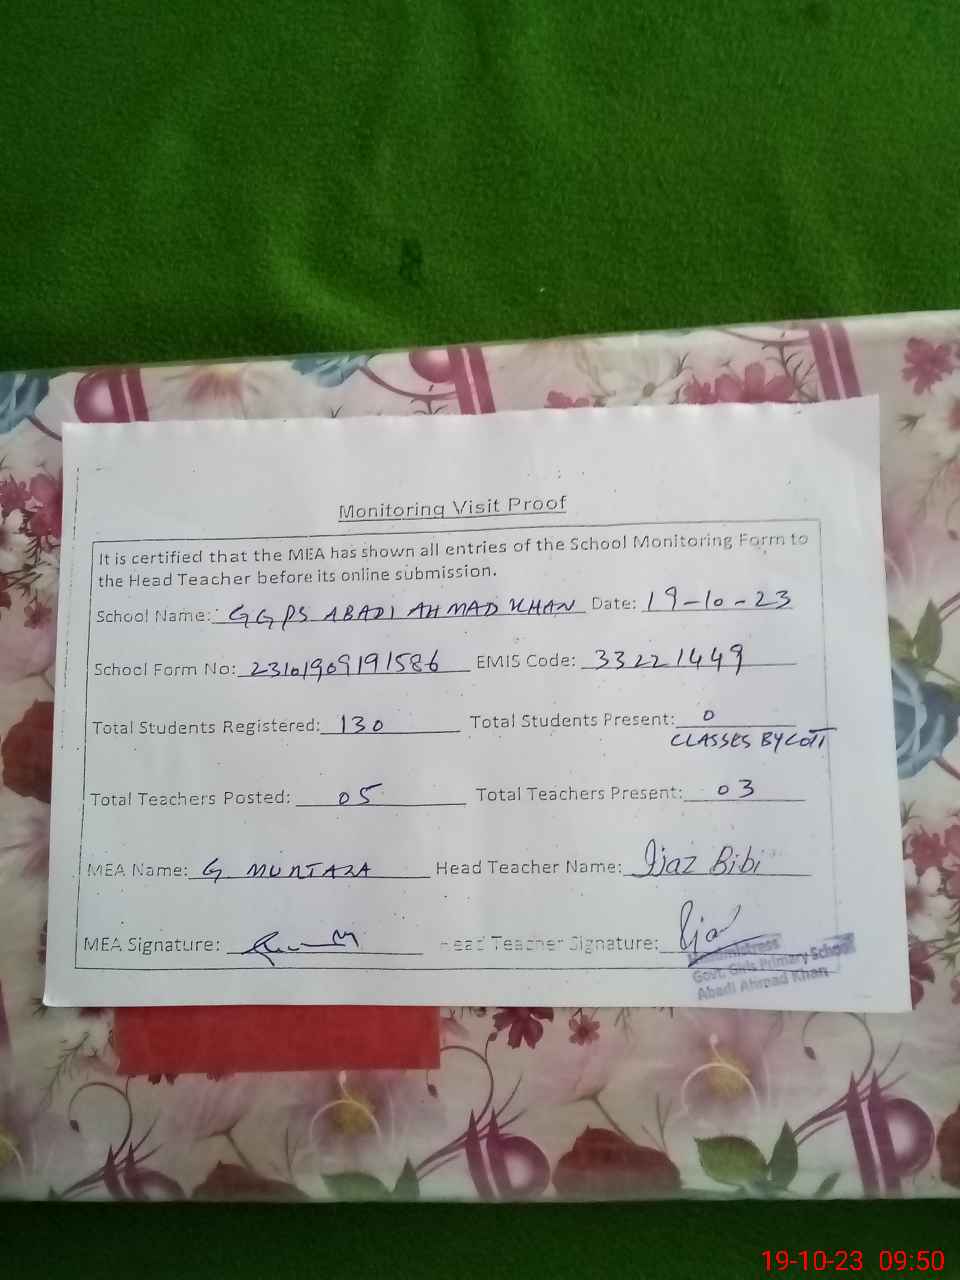 Monitoring Visit Proof
It is certified that the MEA has shown all entries of the School Monitoring Form to
the Head Teacher before its online submission.
School Name: GGPS ABADI AHMAD KHAN Date: 19-10-23
School Form No: 2310190919 1586 EMIS Code: 33221449
Total Students Registered: 130 Total Students Present: 0
CLASSES BYCOTT
Total Teachers Posted: 05 Total Teachers Present: 03
MEA Name: G. MURTAZA Head Teacher Name: Ijaz Bibi
MEA Signature: Head Teacher Signature: Ijaz
Headmistress
Govt. Girls Primary School
Abadi Ahmad Khan
19-10-23 09:50